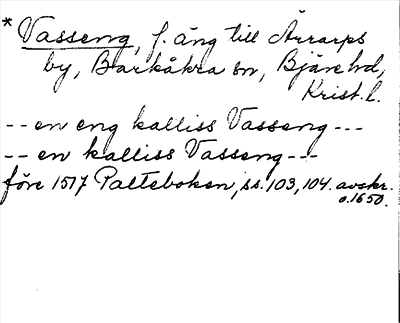 * Vasseng, f. äng till Ärrarps
by, Barkåkra sn, Bjäre hd,
Krist. l.
-- en eng kalliss Vasseng ---
-- en kalliss Vasseng ---
före 1517 Palteboken, ss. 103, 104. avskr.
o. 1650.